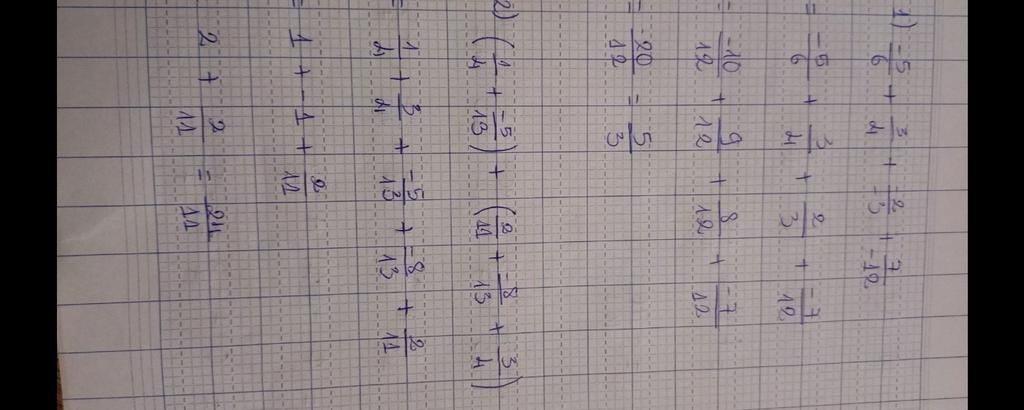 1) -5/6 + 3/4 + -2/-3 + 7/-12
= -5/6 + 3/4 + 2/3 + -7/12
= -10/12 + 9/12 + 8/12 + -7/12
= 20/12 = 5/3
2) (1/4 + -5/13) + (2/11 + -8/13 + 3/4)
= 1/4 + 3/4 + -5/13 + -8/13 + 2/11
= 1 + -1 + 2/11
2 + 2/11 = 24/11